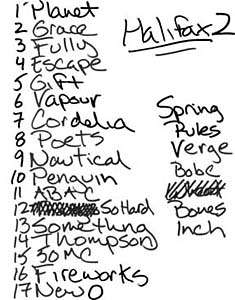 Halifax 2
1 Planet
2 Grace
3 Fully
4 Escape
5 Gift
6 Vapour
7 Cordelia
8 Poets
9 Nautical
10 Penguin
11 ABAC
12 So Hard
13 Something
14 Thompson
15 30 MC
16 Fireworks
17 New O
Spring
Rules
Verge
Bobc
Bones
Inch